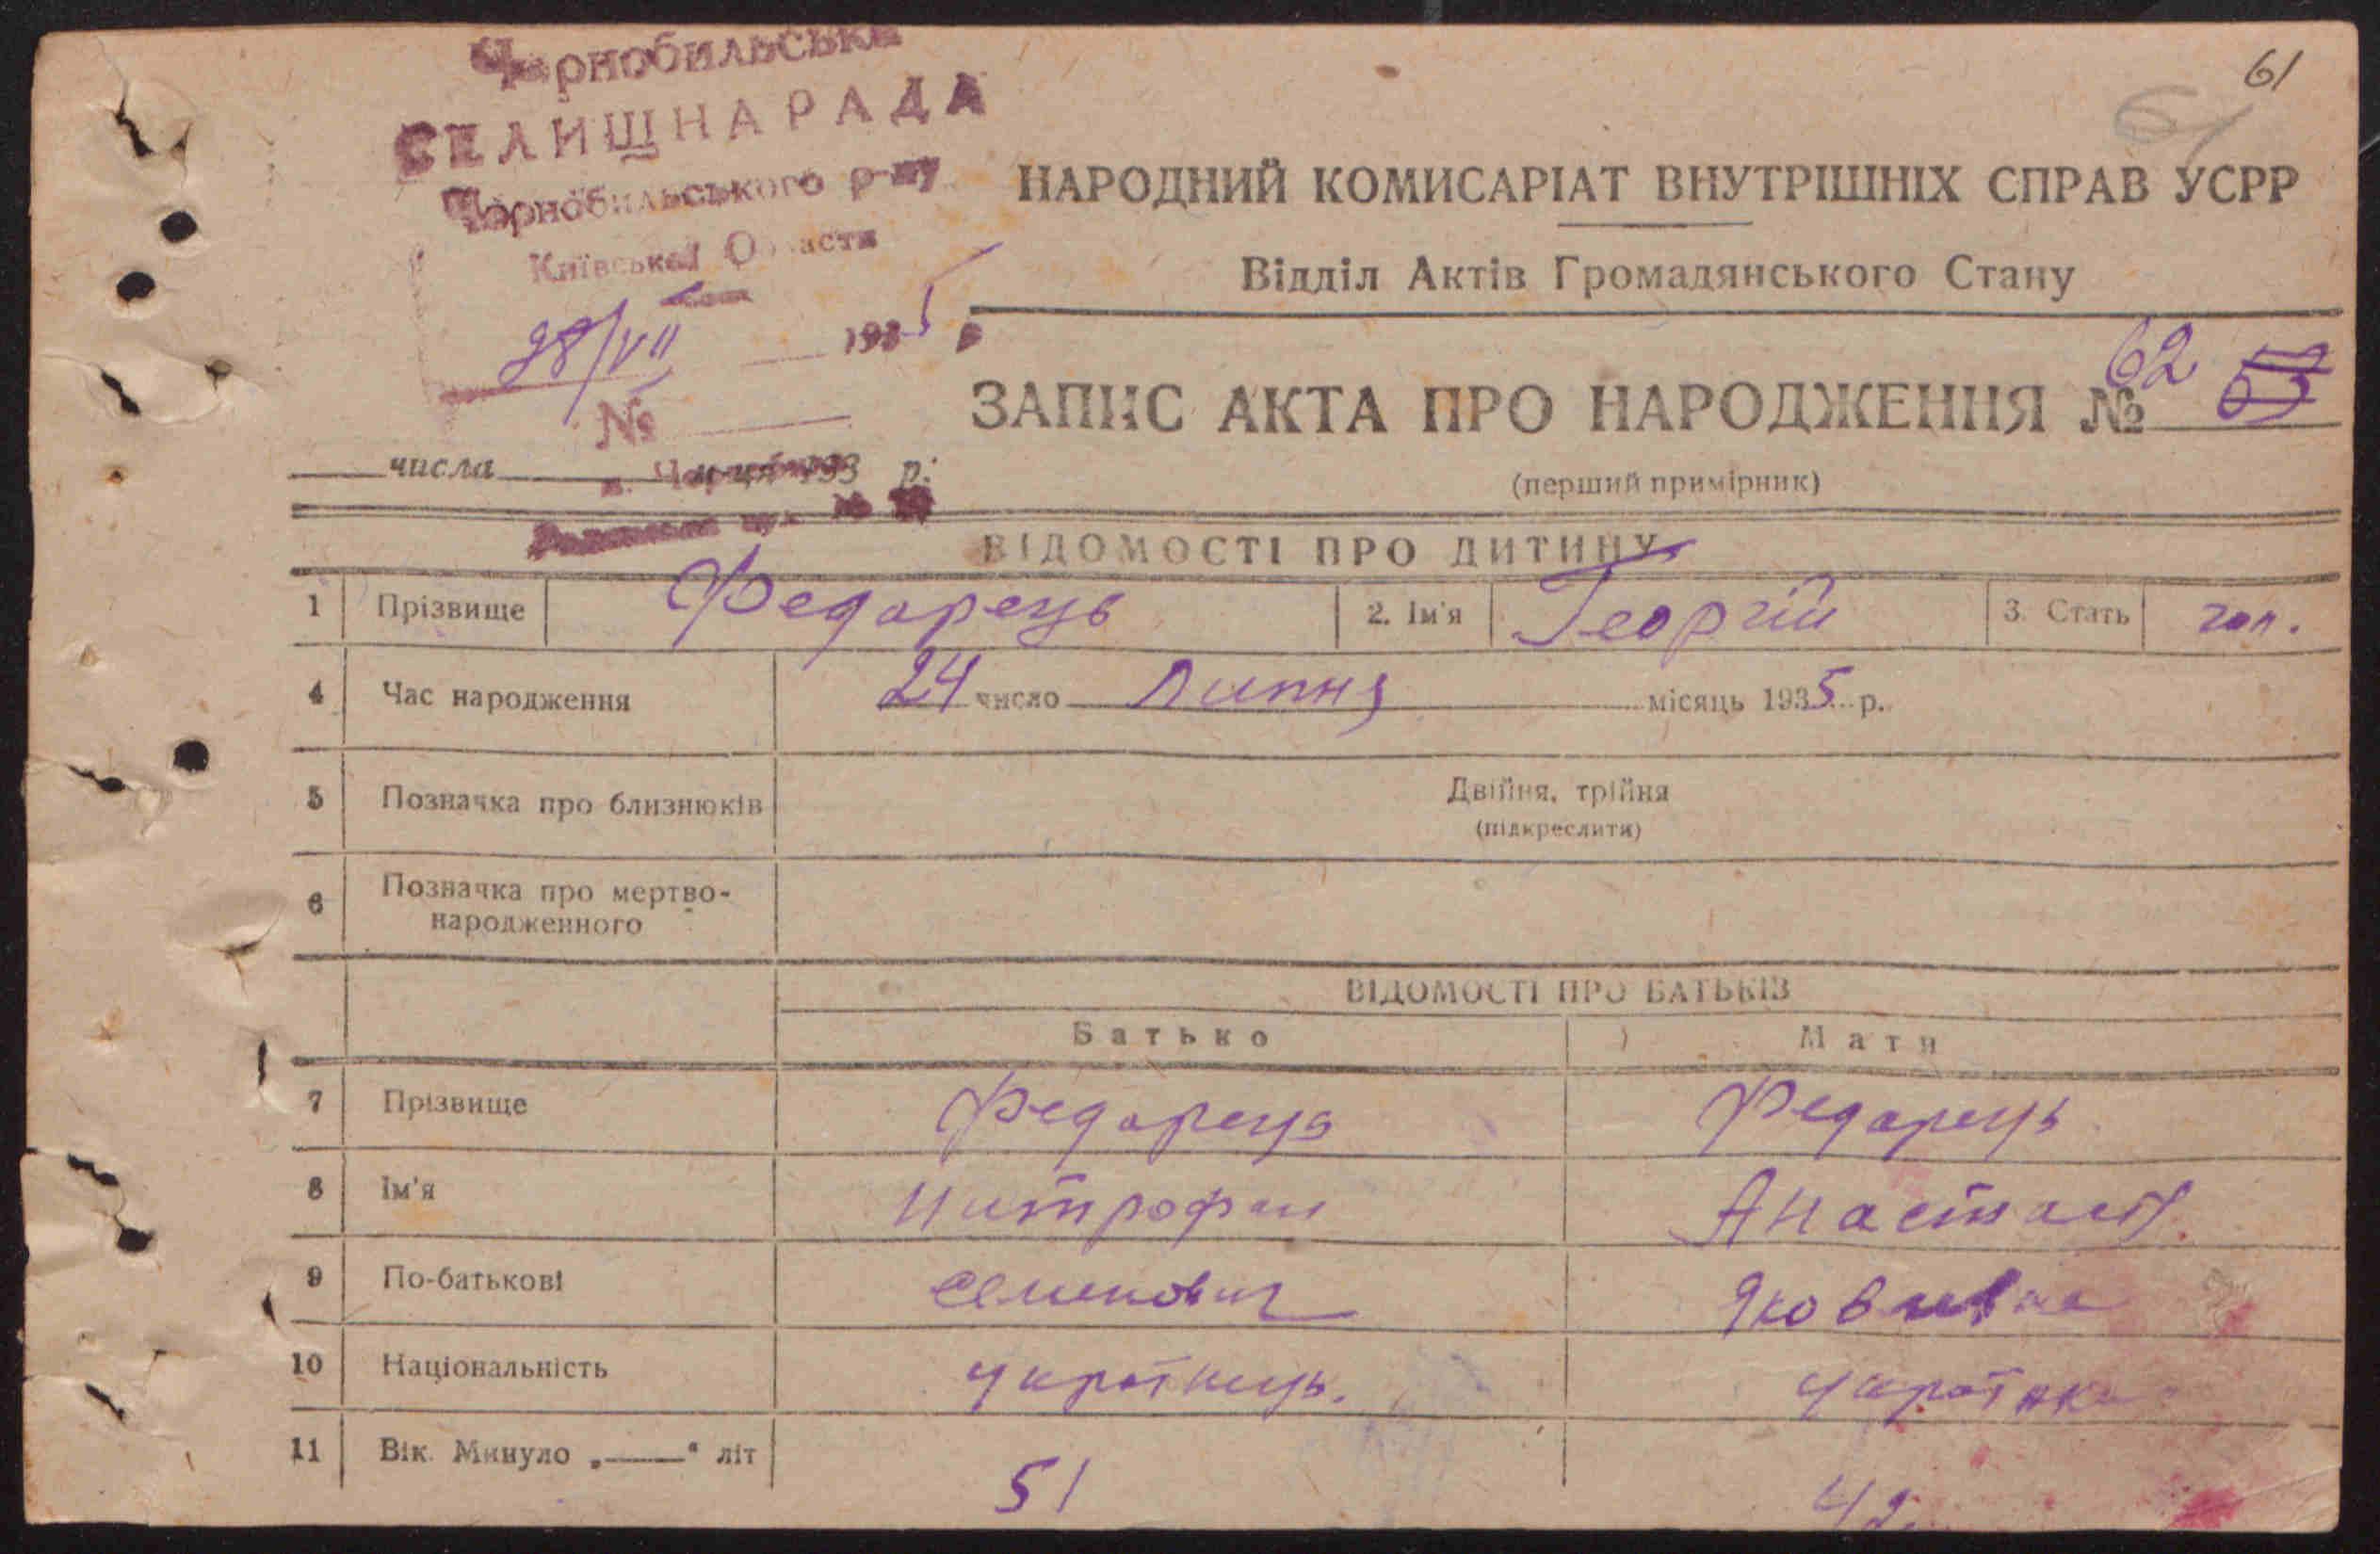 Чорнобильська
СЕЛИЩНА РАДА
Чорнобильського р-ну
Київської Области
28/VII 1935 р
№
61
61
НАРОДНИЙ КОМИСАРІАТ ВНУТРІШНІХ СПРАВ УСРР
Відділ Актів Громадянського Стану
ЗАПИС АКТА ПРО НАРОДЖЕННЯ № 62
числа м-ця 193 р.
(перший примірник)
ВІДОМОСТІ ПРО ДИТИНУ
1 Прізвище Федарець 2. Ім'я Георгій 3. Стать чол.
4 Час народження 24 число Липня місяць 1935 р.
5 Позначка про близнюків Двійня, трійня
(підкреслити)
6 Позначка про мертво-
народженного
ВІДОМОСТІ ПРО БАТЬКІВ
Батько Мати
7 Прізвище Федарець Федарець
8 Ім'я Митрофан Анастасія
9 По-батькові Семенович Яковлівна
10 Національність українець. українка
11 Вік. Минуло „——“ літ 51 42